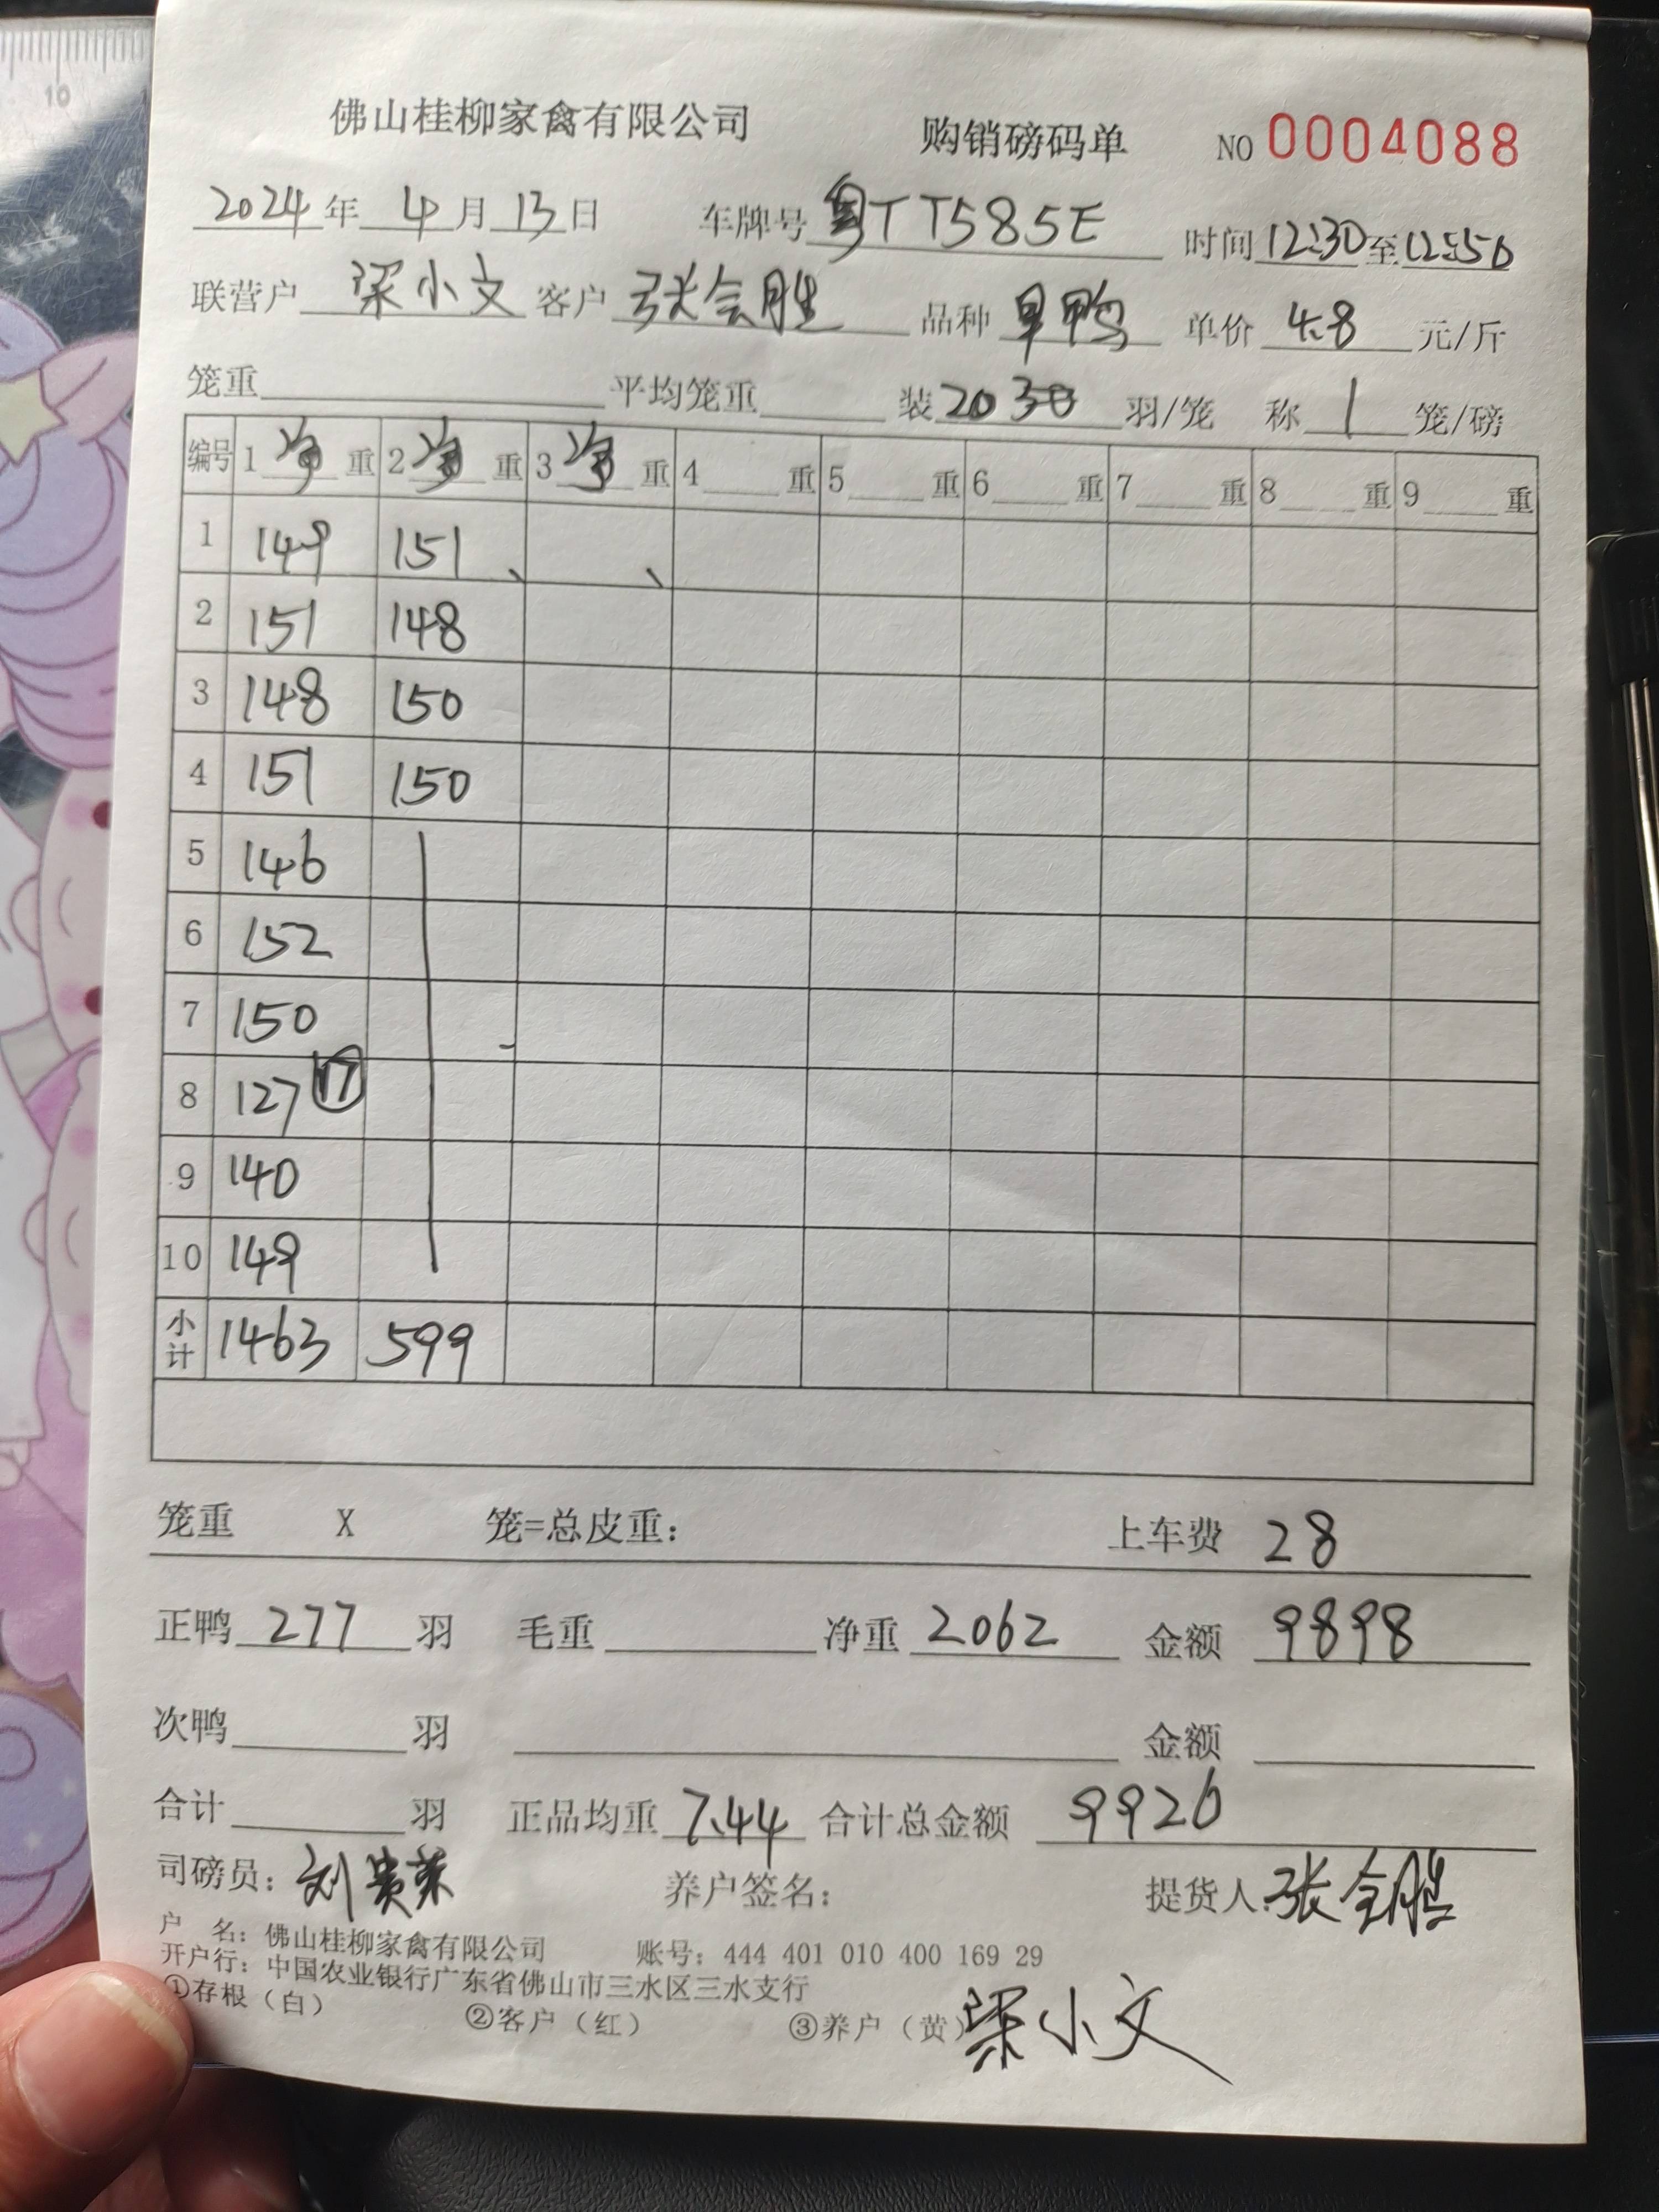 佛山桂柳家禽有限公司 购销磅码单 NO 0004088
2024年 4月 13日 车牌号 粤TT585E 时间 12:30至12:50
联营户 梁小文 客户 张会胜 品种 旱鸭 单价 4.8 元/斤
笼重 平均笼重 装 20 羽/笼 称 1 笼/磅
编号 1 净 重 2 净 重 3 净 重 4 重 5 重 6 重 7 重 8 重 9 重
1 149 151
2 151 148
3 148 150
4 151 150
5 146
6 152
7 150
8 127 ⑰
9 140
10 149
小计 1463 599
笼重 X 笼=总皮重： 上车费 28
正鸭 277 羽 毛重 净重 2062 金额 9898
次鸭 羽 金额
合计 羽 正品均重 7.44 合计总金额 9926
司磅员：刘 养户签名： 提货人：张会胜
户 名：佛山桂柳家禽有限公司 账号：444 401 010 400 169 29
开户行：中国农业银行广东省佛山市三水区三水支行
①存根（白） ②客户（红） ③养户（黄） 梁小文
10